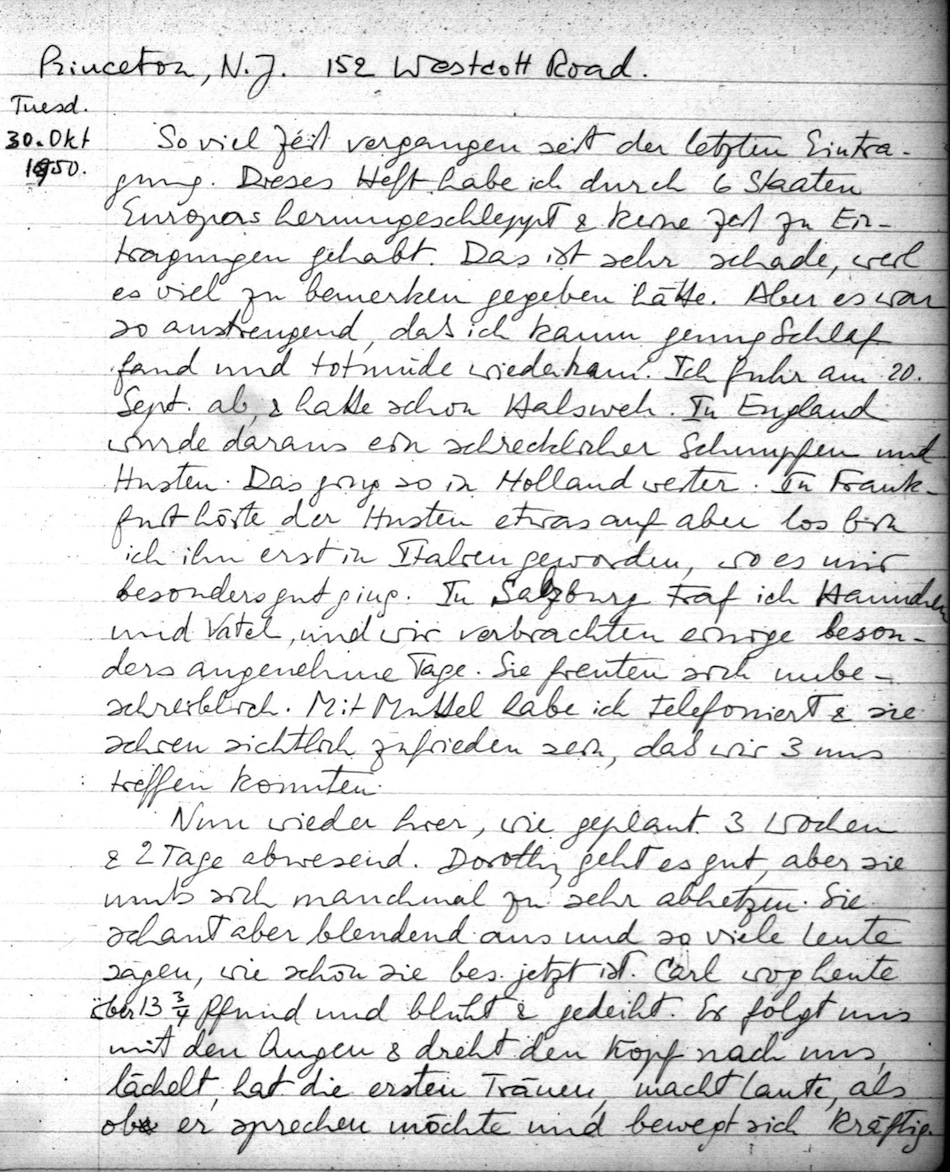 Princeton, N.J. 152 Westcott Road.
Tuesd.
30. Okt
1950.
So viel Zeit vergangen seit der letzten Eintra-
gung. Dieses Heft habe ich durch 6 Staaten
Europas herumgeschleppt & keine Zeit zu Ein-
tragungen gehabt. Das ist sehr schade, weil
es viel zu bemerken gegeben hätte. Aber es war
so anstrengend, daß ich kaum genug Schlaf
fand und totmüde wiederkam. Ich fuhr am 20.
Sept. ab, & hatte schon Halsweh. In England
wurde daraus ein schrecklicher Schnupfen und
Husten. Das ging so in Holland weiter. In Frank-
furt hörte der Husten etwas auf aber los bin
ich ihn erst in Italien geworden, wo es mir
besonders gut ging. In Salzburg traf ich Hannchen
und Vatel, und wir verbrachten einige beson-
ders angenehme Tage. Sie freuten sich unbe-
schreiblich. Mit Muttel habe ich telefoniert & sie
schien sichtlich zufrieden sein, daß wir 3 uns
treffen konnten.
Nun wieder hier, wie geplant 3 Wochen
& 2 Tage abwesend. Dorothy geht es gut, aber sie
muß sich manchmal zu sehr abhetzen. Sie
schaut aber blendend aus und so viele Leute
sagen, wie schön sie bes. jetzt ist. Carl wog heute
über 13 3/4 Pfund und blüht & gedeiht. Er folgt uns
mit den Augen & dreht den Kopf nach uns,
lächelt, hat die ersten Tränen, macht Laute, als
ob er sprechen möchte und bewegt sich kräftig.